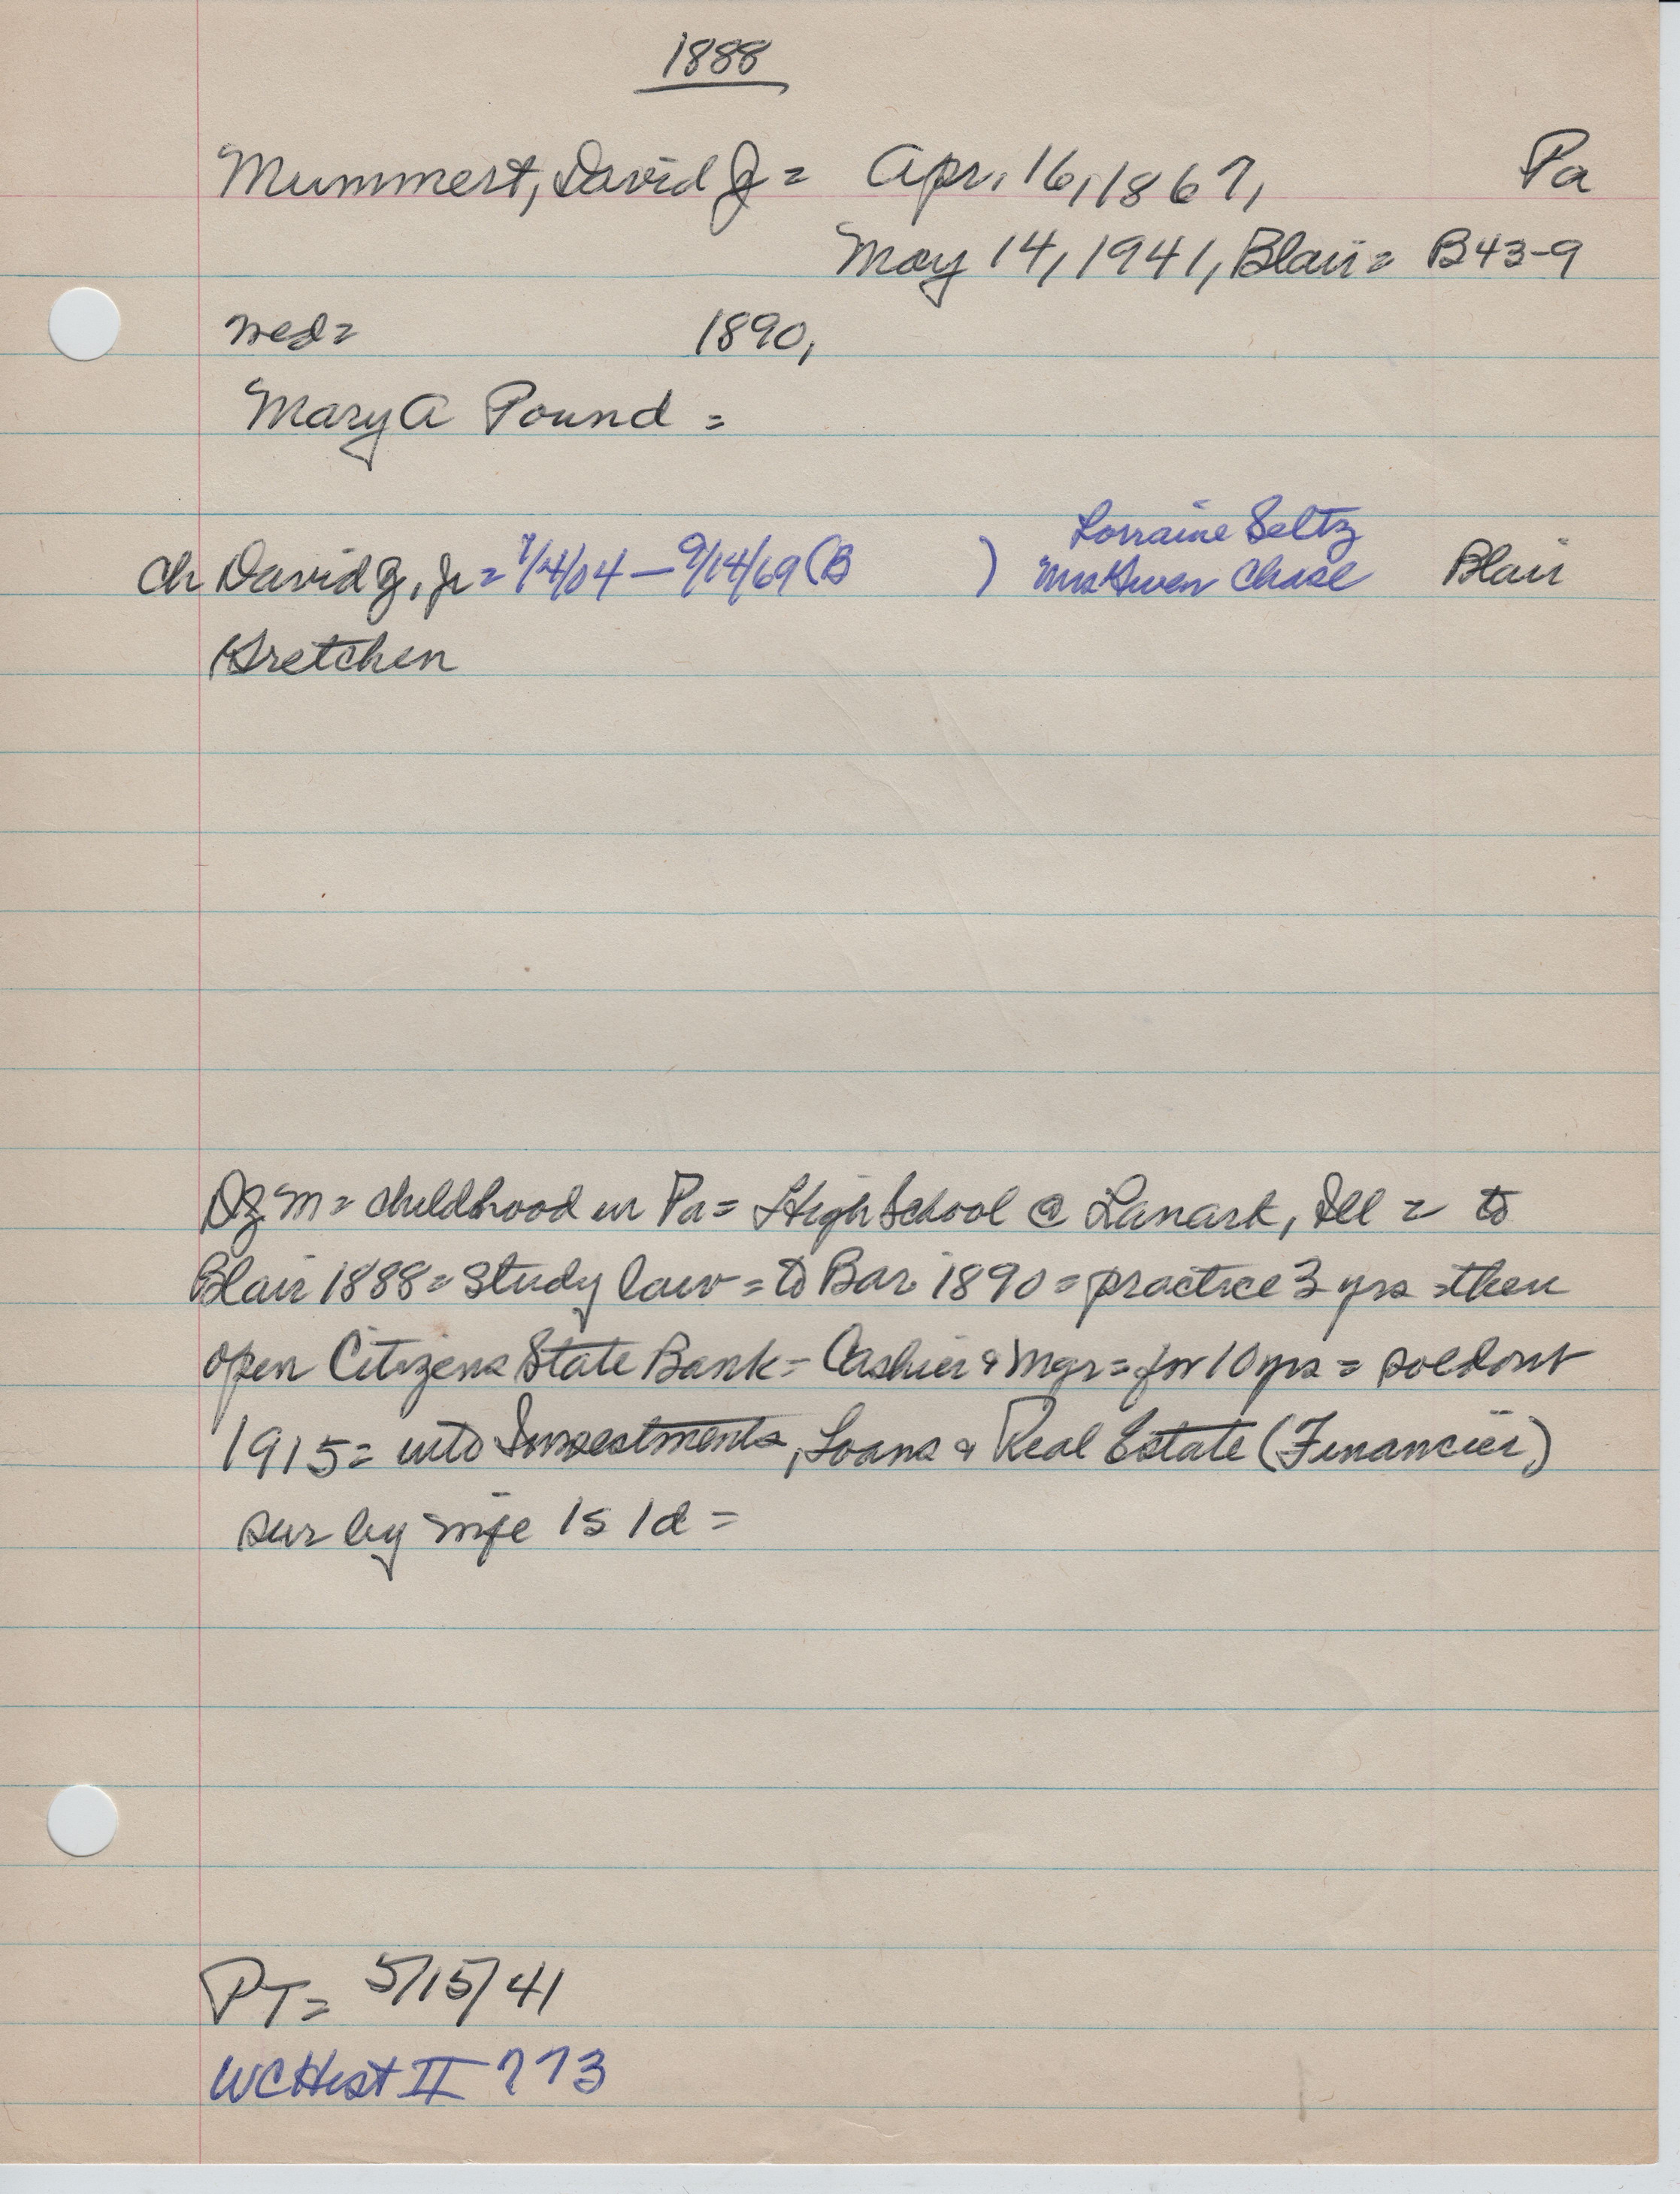 1888
Mummert, David Z = Apr. 16, 1867, Pa
May 14, 1941, Blair = B43-9
wed = 1890,
Mary A Pound =
Lorraine Seltz
ch David Z, Jr = 7/4/04 – 9/14/69 (B ) Mrs Gwen Chase Blair
Gretchen
DZM = childhood in Pa = High School @ Lanark, Ill = to
Blair 1888 = study law = to Bar 1890 = practice 3 yrs = then
open Citizens State Bank = Cashier & Mgr = for 10 yrs = sold out
1915 = into Investments, Loans & Real Estate (Financier)
sur by wife 1s 1d =
PT = 5/15/41
WCHist II 773